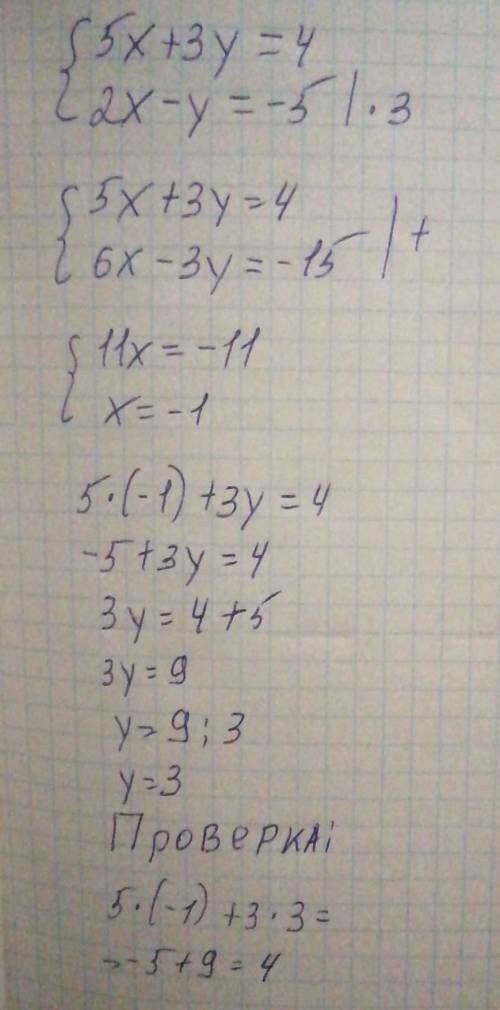 5x+3y=4
2x-y=-5 | · 3
5x+3y=4
6x-3y=-15 | +
11x=-11
x=-1
5·(-1)+3y=4
-5+3y=4
3y=4+5
3y=9
y=9:3
y=3
Проверка:
5·(-1)+3·3=
=-5+9=4